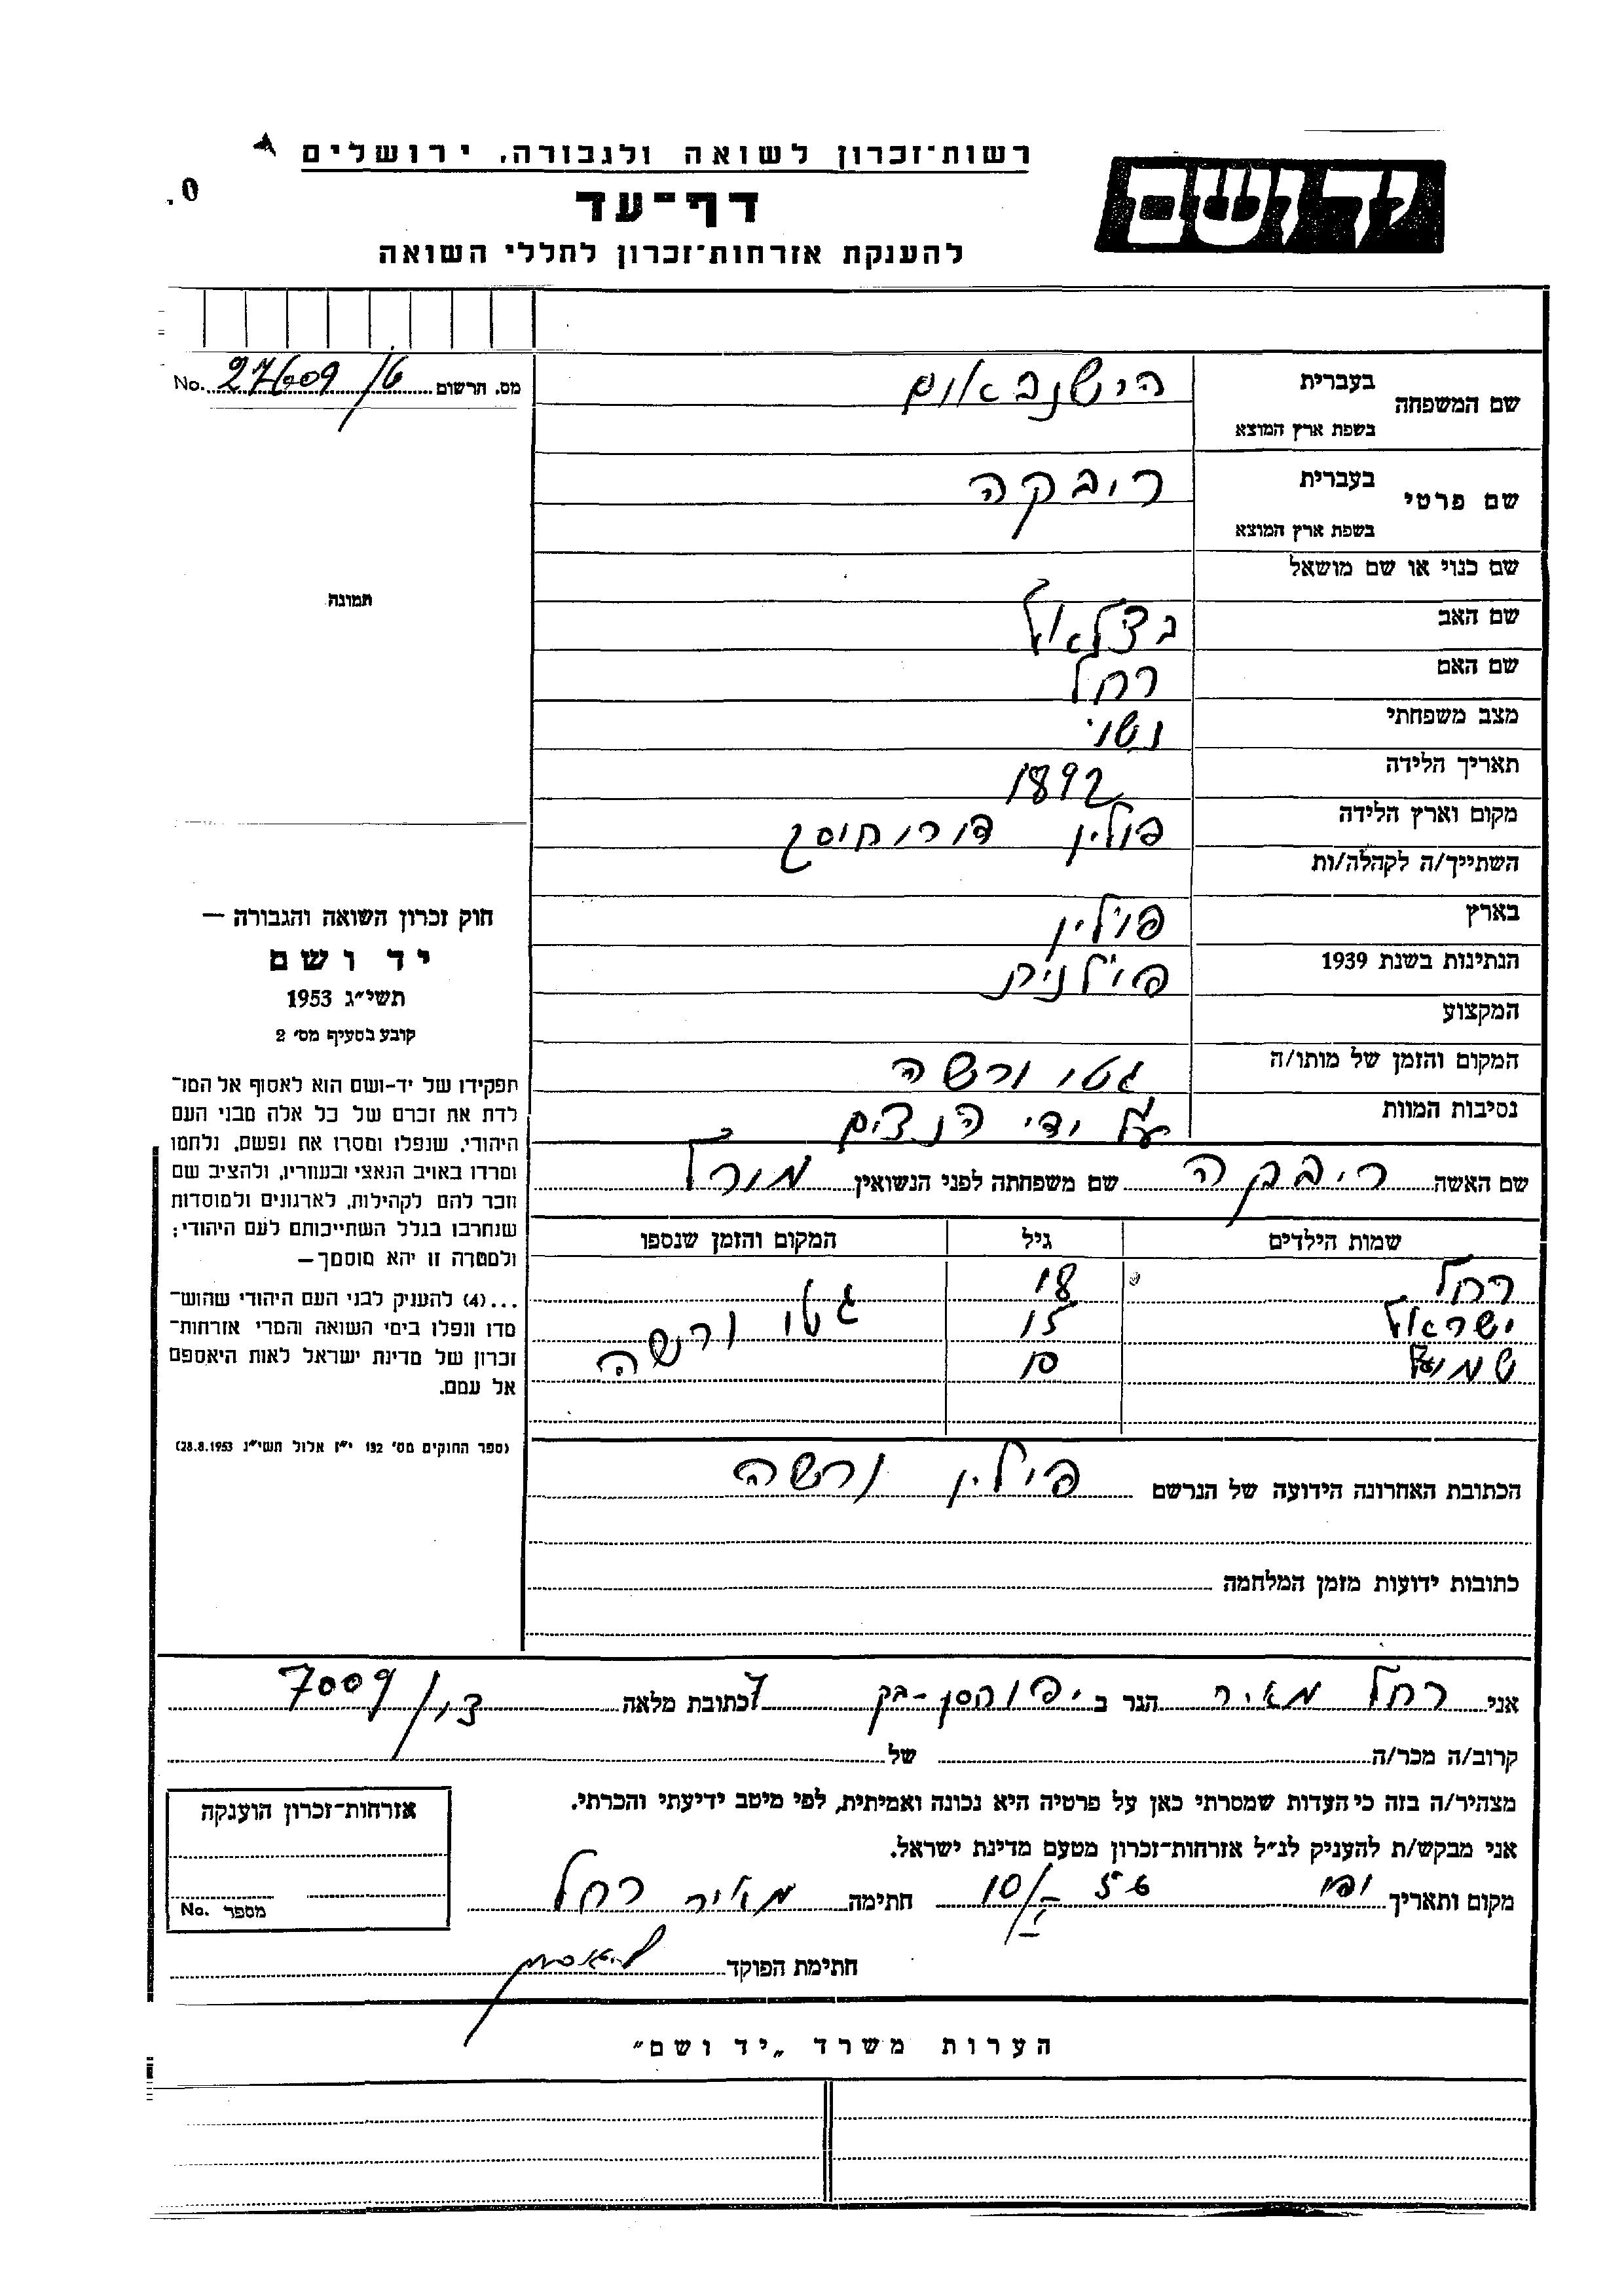 רשות־זכרון לשואה ולגבורה, ירושלים
יד ושם
דף־עד
להענקת אזרחות־זכרון לחללי השואה
מס. תרשום 27609/6 No.
שם המשפחה בעברית הישנבאום
בשפת ארץ המוצא
שם פרטי בעברית ריבקה
בשפת ארץ המוצא
שם כנוי או שם מושאל
שם האב בצלאול
שם האם רחל
מצב משפחתי נשוי
תאריך הלידה 1892
מקום וארץ הלידה פולין
השתייך/ה לקהלה/ות
בארץ פולין
הנתינות בשנת 1939 פולנית
המקצוע
המקום והזמן של מותו/ה גטו ורשה
נסיבות המוות על ידי הנצים
שם האשה ריבקה שם משפחתה לפני הנשואין מורל
שמות הילדים גיל המקום והזמן שנספו
רחל 18 גטו ורשה
ישראול 15
שמועל 10
הכתובת האחרונה הידועה של הנרשם פולין ורשה
כתובות ידועות מזמן המלחמה
תמונה
חוק זכרון השואה והגבורה —
יד ושם
תשי״ג 1953
קובע בסעיף מס׳ 2
תפקידו של יד-ושם הוא לאסוף אל המו־
לדת את זכרם של כל אלה מבני העם
היהודי, שנפלו ומסרו את נפשם, נלחמו
ומרדו באויב הנאצי ובעוזריו, ולהציב שם
וזכר להם לקהילות, לארגונים ולמוסדות
שנחרבו בגלל השתייכותם לעם היהודי;
ולמטרה זו יהא מוסמך—
...(4) להעניק לבני העם היהודי שהוש־
מדו ונפלו בימי השואה והמרי אזרחות־
זכרון של מדינת ישראל לאות היאספם
אל עמם.
(ספר החוקים מס׳ 132 י״ז אלול תשי״ג 28.8.1953)
אני רחל מאיר הגר ב יפו חסן-בק 7 כתובת מלאה 7009
קרוב/ה מכר/ה של
מצהיר/ה בזה כי העדות שמסרתי כאן על פרטיה היא נכונה ואמיתית, לפי מיטב ידיעתי והכרתי.
אני מבקש/ת להעניק לנ״ל אזרחות־זכרון מטעם מדינת ישראל.
מקום ותאריך יפו 10/I חתימה מאיר רחל
חתימת הפוקד
אזרחות־זכרון הוענקה
מספר No.
הערות משרד „יד ושם״